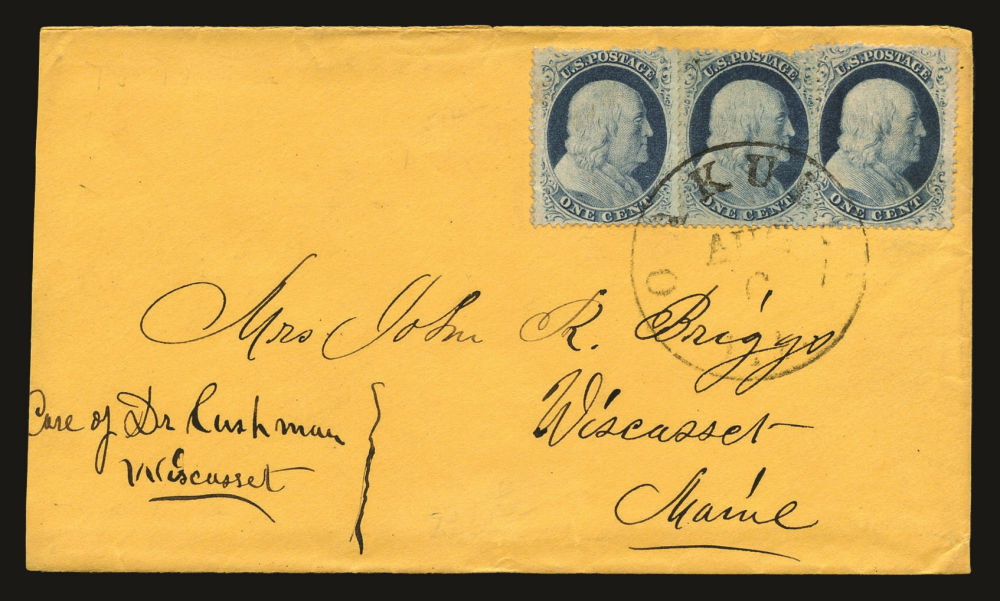 U.S. POSTAGE U.S. POSTAGE U.S. POSTAGE
ONE CENT ONE CENT ONE CENT
Mrs John R. Briggs
Wiscasset
Maine
Care of Dr Cushman
Wiscasset